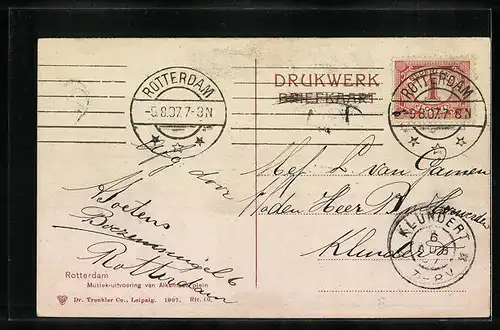 ROTTERDAM
-5.8.07.7-3N
DRUKWERK
BRIEFKAART
1
ROTTERDAM
-5.8.07.7-8N
Afz door
Soetens
Boezemsingel 6
Rotterdam
Mej L van Gameren
den Heer B
Klundert
KLUNDERT
6
7-8V
Rotterdam
Muziek-uitvoering van Alkemadeplein
Dr. Trenkler Co., Leipzig. 1907. Rtt. 10.